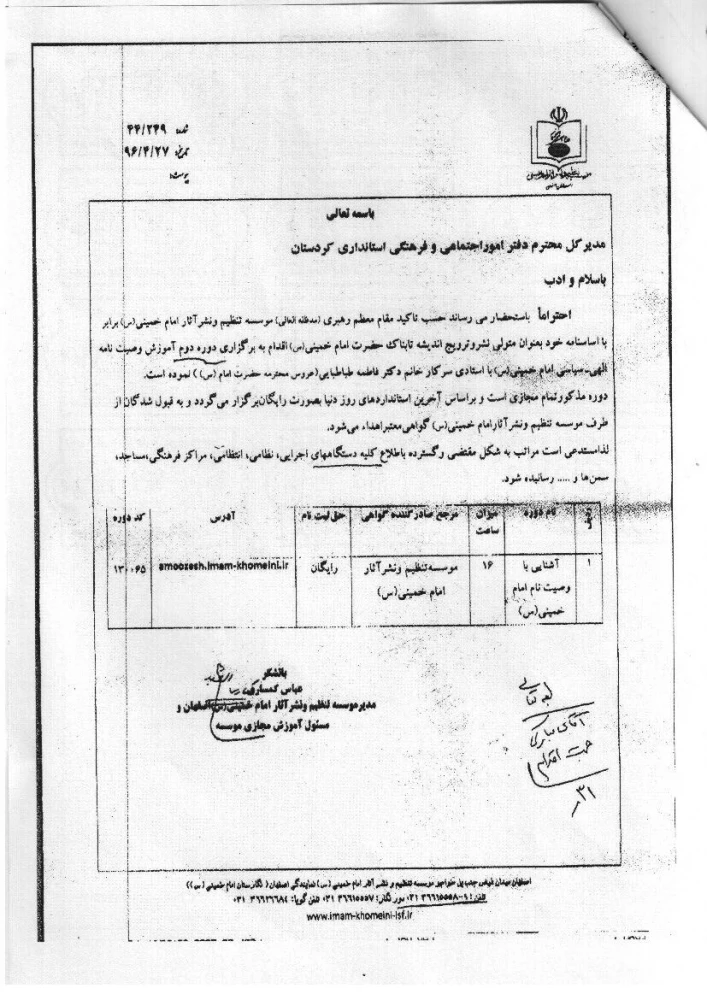 شماره: ۴۴/۲۴۹
تاریخ: ۹۶/۴/۲۷
پیوست:
باسمه تعالی
مدیرکل محترم دفتر اموراجتماعی و فرهنگی استانداری کردستان
باسلام و ادب
احتراماً باستحضار می رساند حسب تاکید مقام معظم رهبری (مدظله العالی) موسسه تنظیم ونشرآثار امام خمینی(س) برابر
با اساسنامه خود بعنوان متولی نشروترویج اندیشه تابناک حضرت امام خمینی(س) اقدام به برگزاری دوره دوم آموزش وصیت نامه
الهی-سیاسی امام خمینی(س) با استادی سرکار خانم دکتر فاطمه طباطبایی(عروس محترمه حضرت امام (س) ) نموده است.
دوره مذکورتمام مجازی است و براساس آخرین استانداردهای روز دنیا بصورت رایگان برگزار می گردد و به قبول شدگان از
طرف موسسه تنظیم ونشرآثارامام خمینی(س) گواهی معتبراهداء می شود.
لذامستدعی است مراتب به شکل مقتضی وگسترده باطلاع کلیه دستگاههای اجرایی، نظامی، انتظامی، مراکز فرهنگی،مساجد،
سمن ها و ..... رسانیده شود.
ردیف نام دوره میزان ساعت مرجع صادرکننده گواهی حق ثبت نام آدرس کد دوره
۱ آشنایی با وصیت نام امام خمینی(س) ۱۶ موسسه تنظیم ونشرآثار امام خمینی(س) رایگان amoozesh.imam-khomeini.ir ۱۳۰۰۶۵
باتشکر
عباس کمساری
مدیرموسسه تنظیم ونشرآثار امام خمینی(س)اصفهان و
مسئول آموزش مجازی موسسه
آقای
جهت اقدام
۳۱
اصفهان میدان فیض جنب پل خواجو موسسه تنظیم و نشر آثار امام خمینی (س) نمایندگی اصفهان ( نگارستان امام خمینی (س))
تلفن: ۹-۳۶۶۱۵۵۵۸ ۰۳۱ دور نگار: ۳۶۶۱۵۵۵۷ ۰۳۱ تلفن گویا: ۳۶۶۲۶۶۸۴ ۰۳۱
www.imam-khomeini-isf.ir